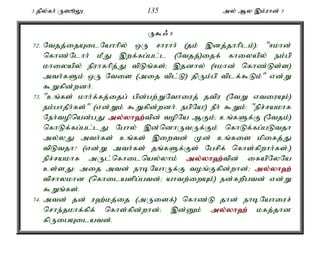 3 தில்கர் ருஸூலு 135 அல் ஆல இம்ரான் 3
ருகூஃ 8
72. வேதத்தையுடையோரில் ஒரு சாரார் (தம் இனத்தாரிடம்): "ஈமான்
கொண்டோர் மீது இறக்கப்பட்ட (வேதத்)தைக் காலையில் நம்பி
மாலையில் நிராகரித்து விடுங்கள்; இதனால் (ஈமான் கொண்டுள்ள)
அவர்களும் ஒரு வேளை (அதை விட்டு) திரும்பி விடக்கூடும்" என்று
கூறுகின்றனர்.
73. "உங்கள் மார்க்கத்தைப் பின்பற்றுவோரைத் தவிர (வேறு எவரையும்)
நம்பாதீர்கள்" (என்றும் கூறுகின்றனர். நபியே!) நீர் கூறும்: "நிச்சயமாக
நேர்வழியென்பது அல்லாஹ்வின் வழியே ஆகும்; உங்களுக்கு (வேதம்)
கொடுக்கப்பட்டது போல் இன்னொருவருக்கும் கொடுக்கப்படுவதா
அல்லது அவர்கள் உங்கள் இறைவன் முன் உங்களை மிகைத்து
விடுவதா? (என்று அவர்கள் தங்களுக்குள் பேசிக் கொள்கிறார்கள்.)
நிச்சயமாக அருட்கொடையெல்லாம் அல்லாஹ்வின் கையிலேயே
உள்ளது; அதை அவன் நாடியோருக்கு வழங்குகின்றான்; அல்லாஹ்
விசாலமான (கொடையளிப்பவன்; யாவற்றையும்) நன்கறிபவன் என்று
கூறுங்கள்.
74. அவன் தன் ரஹ்மத்தை (அருளைக்) கொண்டு தான் நாடியோரைச்
சொந்தமாக்கிக் கொள்கின்றான்; இன்னும் அல்லாஹ் மகத்தான
கிருபையுடையவன்.